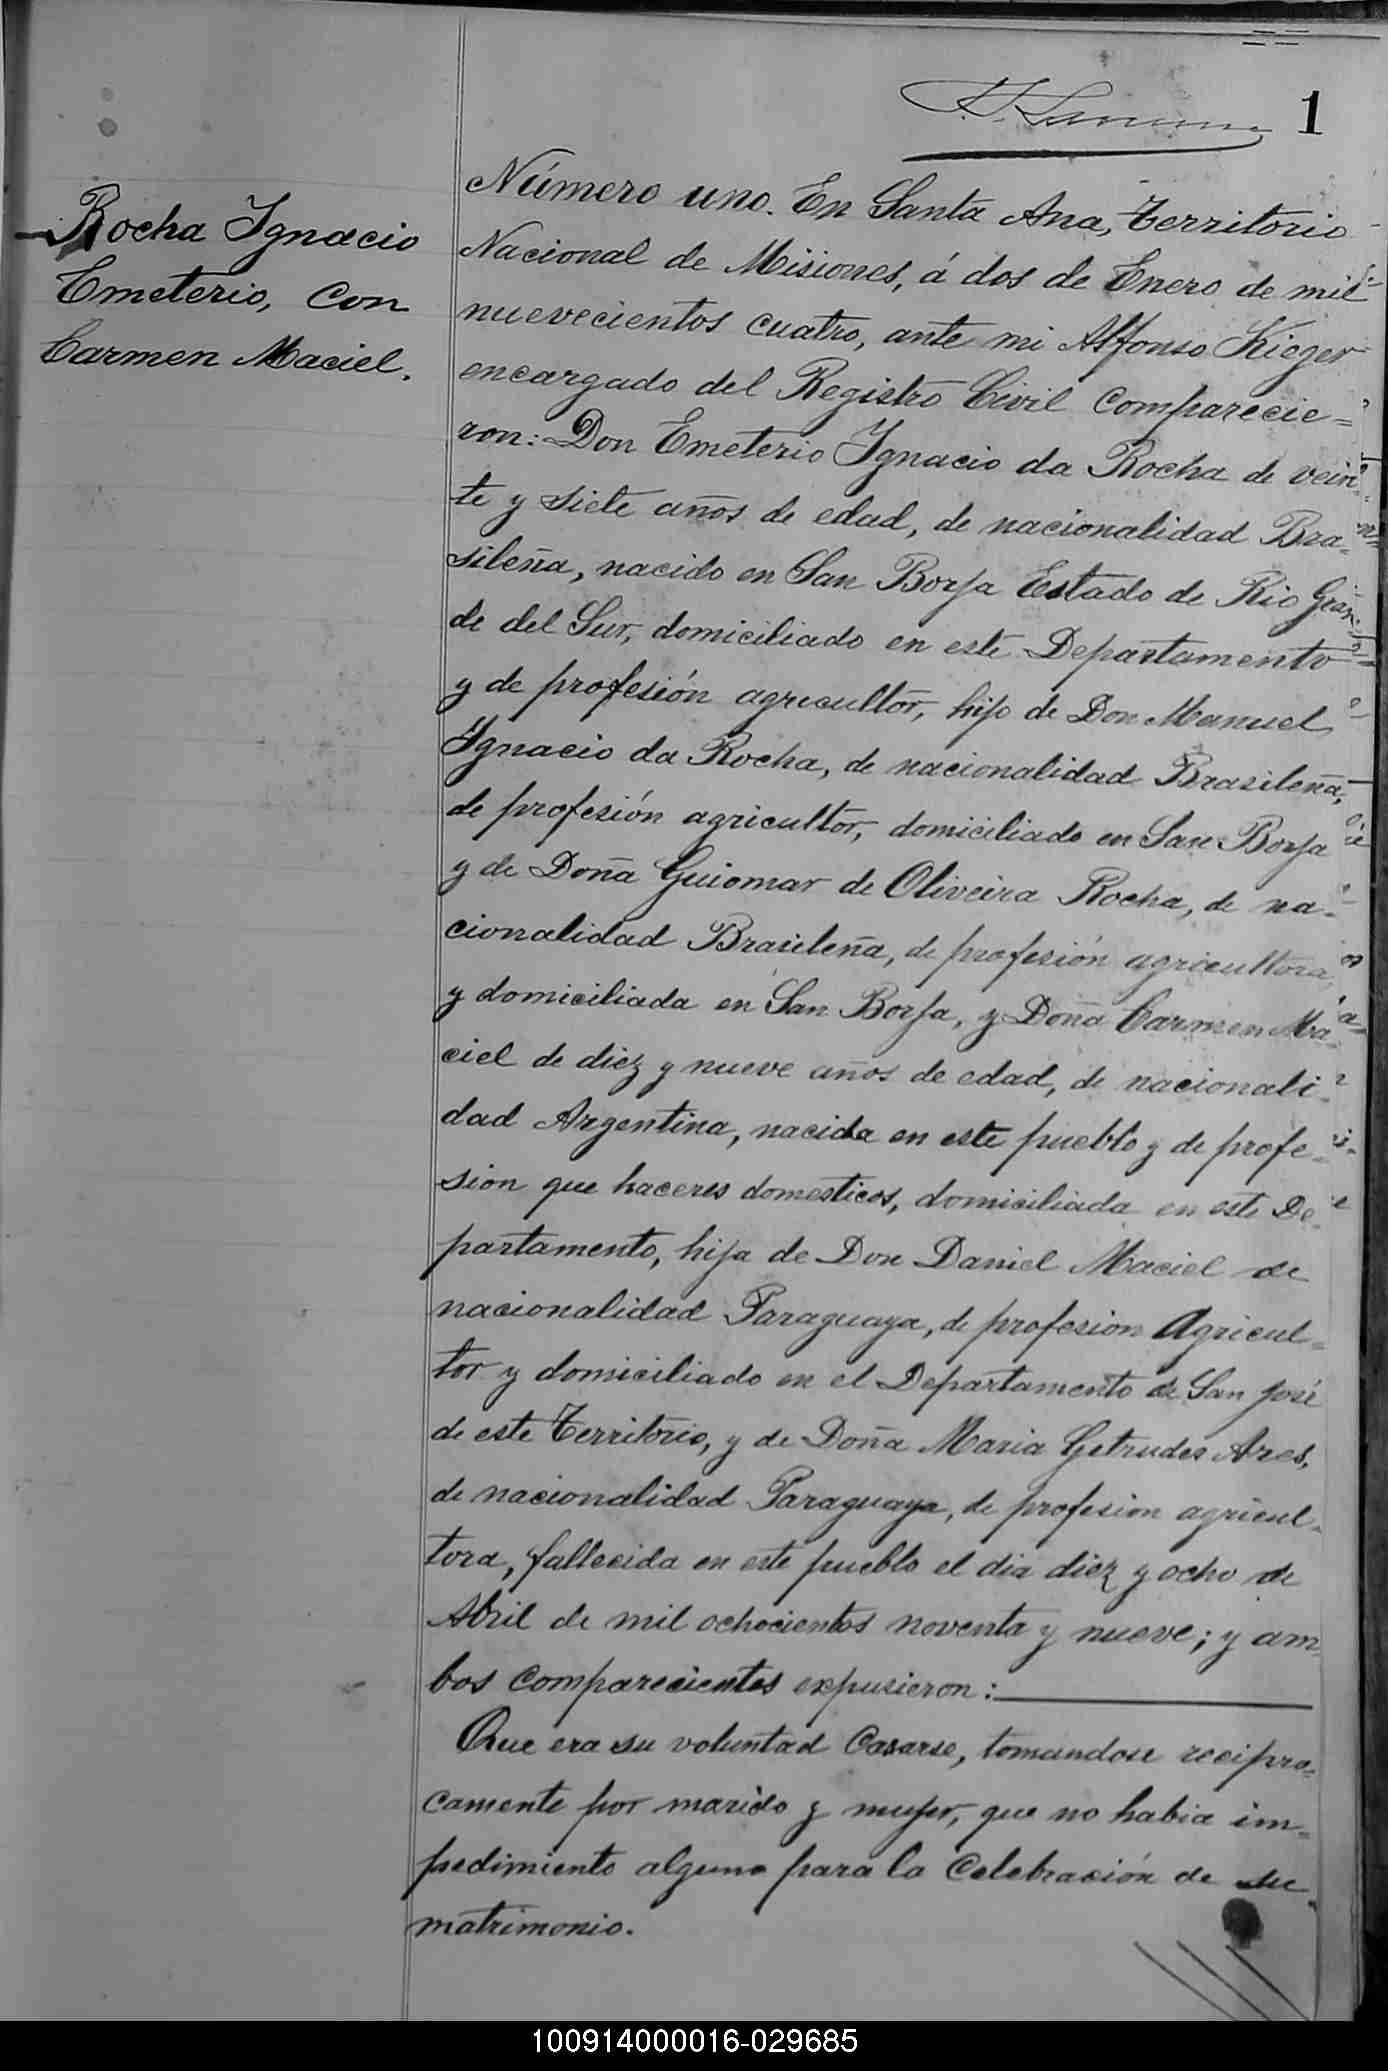 1
Rocha Ignacio
Emeterio, Con
Carmen Maciel.
Número uno. En Santa Ana, Territorio
Nacional de Misiones, á dos de Enero de mil
nuevecientos cuatro, ante mi Alfonso Kieger
encargado del Registro Civil Comparecie=
ron: Don Emeterio Ignacio da Rocha de vein
te y siete años de edad, de nacionalidad Bra=
sileña, nacido en San Borja Estado de Rio Gran
de del Sur, domiciliado en este Departamento
y de profesión agricultor, hijo de Don Manuel
Ignacio da Rocha, de nacionalidad Brasileña,
de profesión agricultor, domiciliado en San Borja
y de Doña Guiomar de Oliveira Rocha, de na=
cionalidad Brasileña, de profesión agricultora,
y domiciliada en San Borja, y Doña Carmen Ma=
ciel de diez y nueve años de edad, de nacionali=
dad Argentina, nacida en este pueblo y de profe=
sion que haceres domesticos, domiciliada en este De=
partamento, hija de Don Daniel Maciel de
nacionalidad Paraguaya, de profesion Agricul=
tor y domiciliado en el Departamento de San José
de este Territorio, y de Doña Maria Getrudes Ares,
de nacionalidad Paraguaya, de profesion agricul=
tora, fallecida en este pueblo el dia diez y ocho de
Abril de mil ochocientos noventa y nueve; y am
bos Comparecientes expusieron:
Que era su voluntad Casarse, tomandose recipro=
camente por marido y mujer, que no habia im=
pedimiento alguno para la Celebración de su
matrimonio.
100914000016-029685